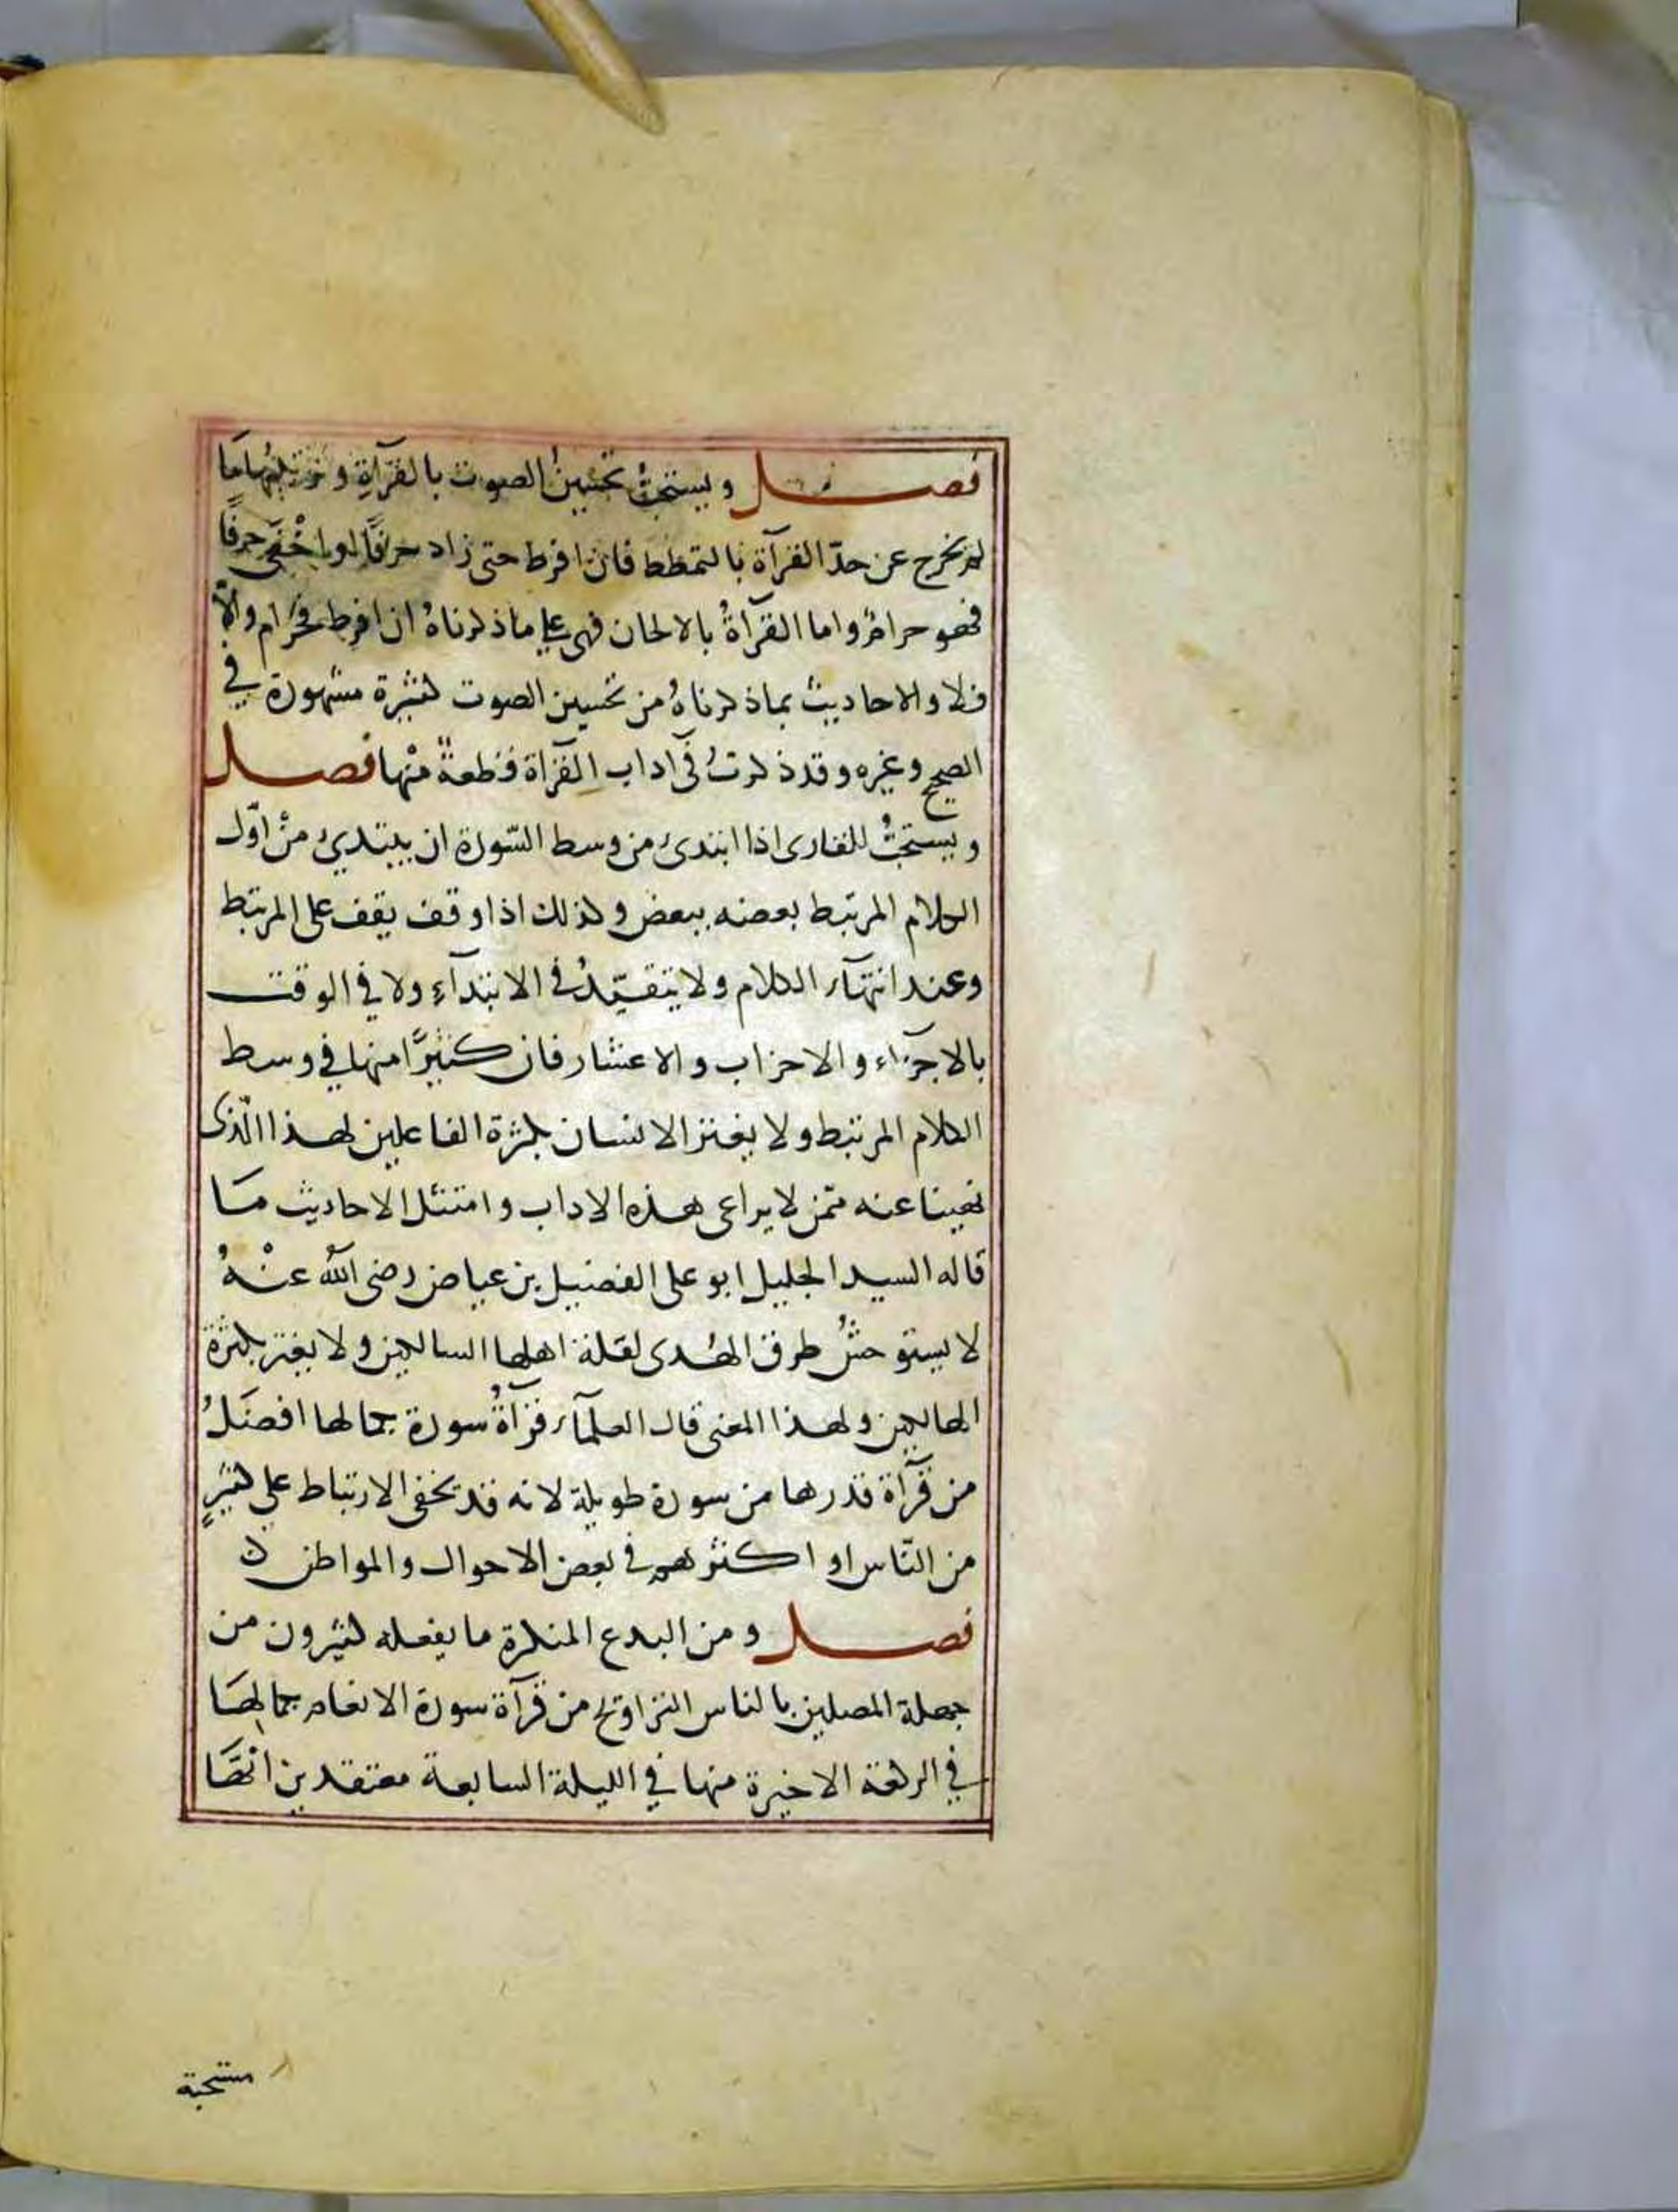 فصل ويستحبُّ تحسينُ الصوت بالقرآةِ وتزيينُها مَا
لم يخرج عن حدّ القرآة بالتمطط فان افرط حتى زاد حرفًا او اخْفَى حرفًا
فهو حرامٌ واما القرآةُ بالالحان فهى على ماذكرناهُ ان افرط فحَرام والّا
فلا والاحاديثُ بماذكرناهُ من تحسين الصوت كثيرة مشهورة في
الصحيح وغيره وقد ذكرتُ فى اداب القرآة قطعةً منْها فصل
ويستحبُّ للقارى اذا ابتدئ من وسط السّورة ان يبتدئ منْ اوّل
الكلام المرتبط بعضه ببعض وكذلك اذا وقف يقف على المرتبط
وعند انتهآء الكلام ولا يتقيّدُ في الابتدآءِ ولا في الوقت
بالاجزآء والاحزاب والاعشار فان كثيرًا منها في وسط
الكلام المرتبط ولا يغتر الانسان بكثرة الفاعلين لهذا الّذى
نهينا عنه ممّن لا يراعى هذه الاداب وامتثل الاحاديث مَا
قاله السيد الجليل ابو على الفضيل بن عياض رضى الله عنْهُ
لا يستوحشُ طرق الهُدى لقلة اهلها السالكين ولا يغتر بكثرة
الهالكين ولهذا المعنى قال العلمآء قرآةُ سورة بكمالها افضَلُ
من قرآة قدرها من سورة طويلة لانه قد يخفى الارتباط على كثيرٍ
من النّاس او اكثرهم في بعض الاحوال والمواطن ن
فصل ومن البدع المنكرة ما يفعله كثيرون من
جهلة المصلين بالناس التراويح من قرآة سورة الانعام بكمالهَا
في الركعة الاخيرة منها في الليلة السابعة معتقدين انّهَا
مستحبة